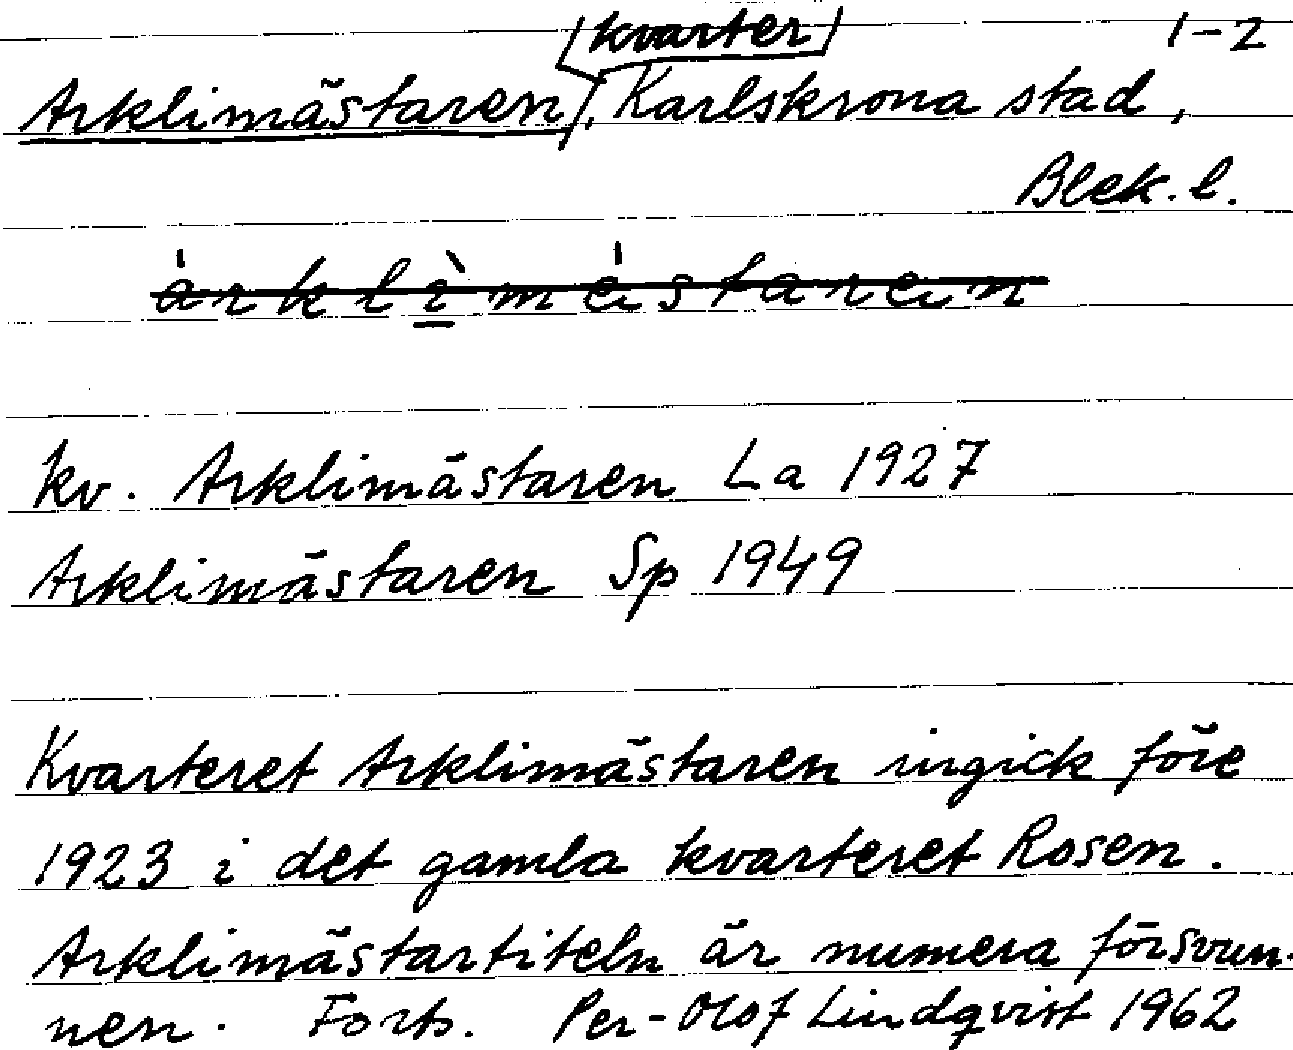 kvarter 1-2
Arklimästaren, Karlskrona stad,
Blek. l.
kv. Arklimästaren La 1927
Arklimästaren Sp 1949
Kvarteret Arklimästaren ingick före
1923 i det gamla kvarteret Rosen.
Arklimästartiteln är numera försvun-
nen. Forts. Per-Olof Lindqvist 1962